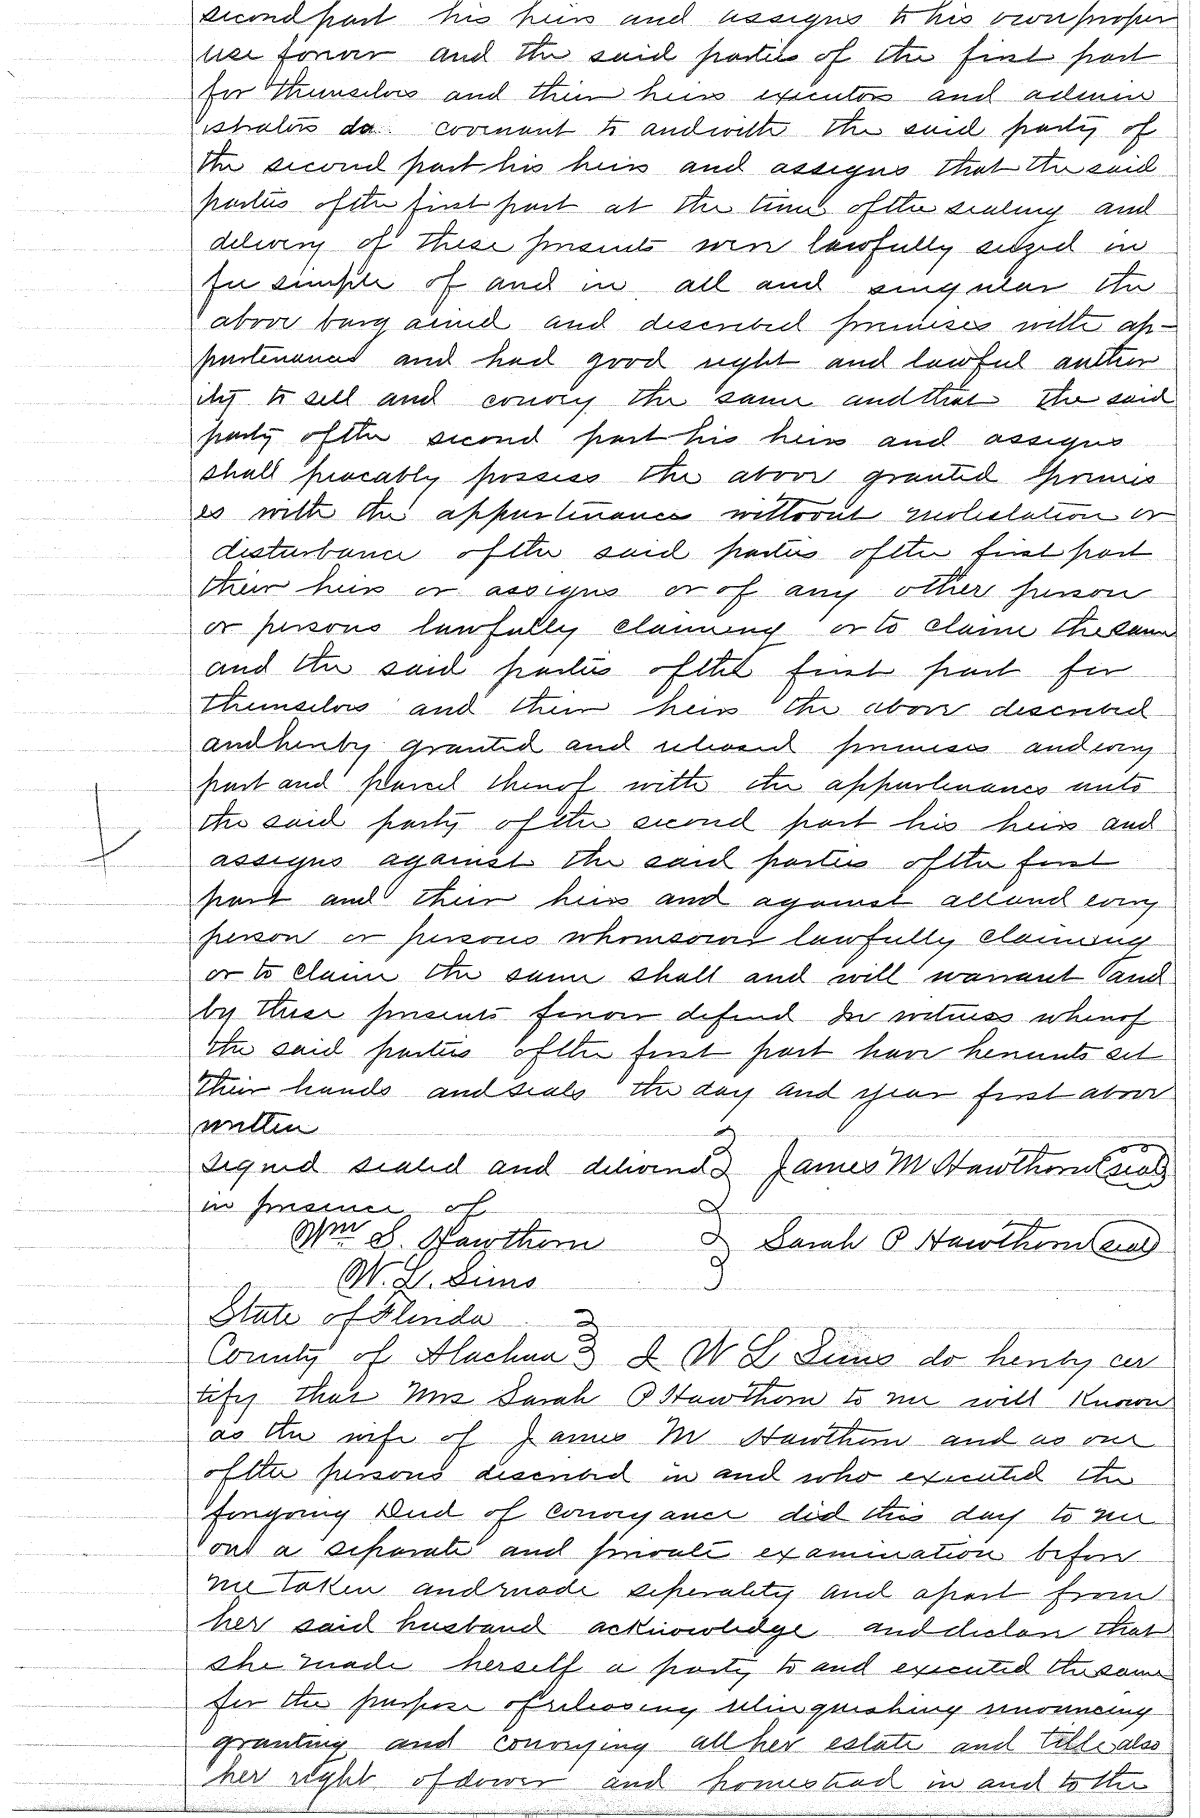 second part his heirs and assigns to his own proper
use forever and the said parties of the first part
for themselves and their heirs executors and admin
istrators do covenant to and with the said party of
the second part his heirs and assigns that the said
parties of the first part at the time of the sealing and
delivery of these presents were lawfully seized in
fee simple of and in all and singular the
above bargained and described premises with ap-
purtenances and had good right and lawful author
ity to sell and convey the same and that the said
party of the second part his heirs and assigns
shall peacably possess the above granted premis
es with the appurtenances without molestation or
disturbance of the said parties of the first part
their heirs or assigns or of any other person
or persons lawfully claiming or to claim the same
and the said parties of the first part for
themselves and their heirs the above described
and hereby granted and released premises and every
part and parcel thereof with the appurtenances unto
the said party of the second part his heirs and
assigns against the said parties of the first
part and their heirs and against all and every
person or persons whomsoever lawfully claiming
or to claim the same shall and will warrant and
by these presents forever defend In witness whereof
the said parties of the first part have hereunto set
their hands and seals the day and year first above
written
Signed sealed and delivered James M Hawthorn (seal)
in presence of
Wm S. Hawthorn Sarah P Hawthorn (seal)
W. L. Sims
State of Florida
County of Alachua I W L Sims do hereby cer
tify that Mrs Sarah P Hawthorn to me well Known
as the wife of James M Hawthorn and as one
of the persons described in and who executed the
foregoing Deed of conveyance did this day to me
on a separate and private examination before
me taken and made seperality and apart from
her said husband acknowledge and declare that
she made herself a party to and executed the same
for the purpose of releasing relinquishing renouncing
granting and conveying all her estate and title also
her right of dower and homestead in and to the